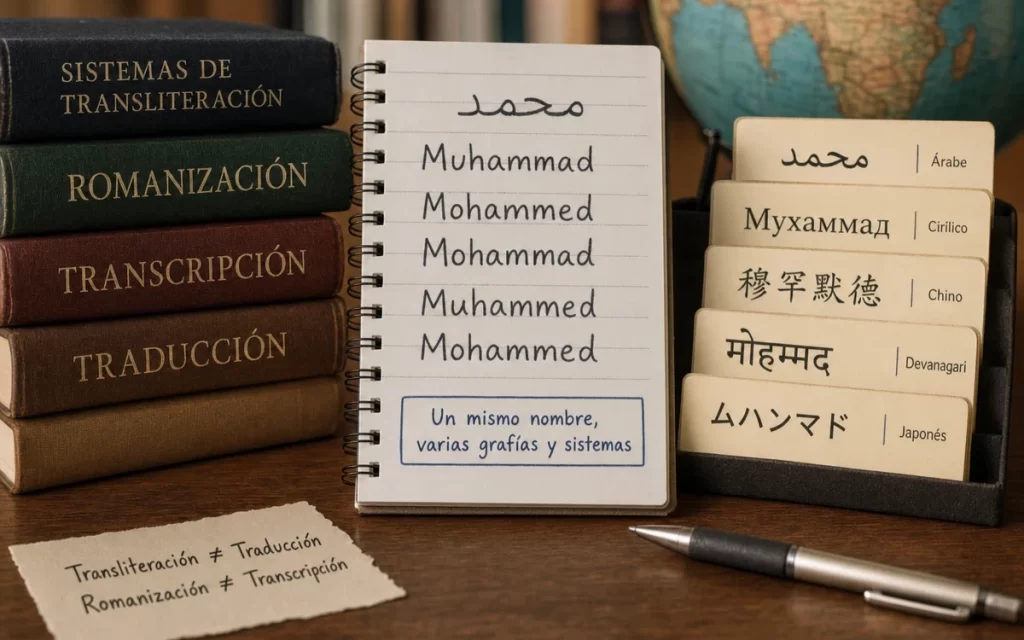 SISTEMAS DE
TRANSLITERACIÓN
ROMANIZACIÓN
TRANSCRIPCIÓN
TRADUCCIÓN
محمد
Muhammad
Mohammed
Mohammad
Muhammed
Mohammed
Un mismo nombre,
varias grafías y sistemas
محمد | Árabe
Мухаммад | Cirílico
穆罕默德 | Chino
मोहम्मद | Devanagari
ムハンマド | Japonés
Transliteración ≠ Traducción
Romanización ≠ Transcripción